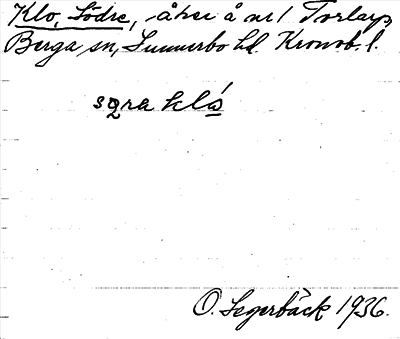 Klo, Södre, åker å nr 1 Torlarp,
Berga sn, Sunnerbo hd. Kronob. l.
sqra kló
O. Segerbäck 1936.